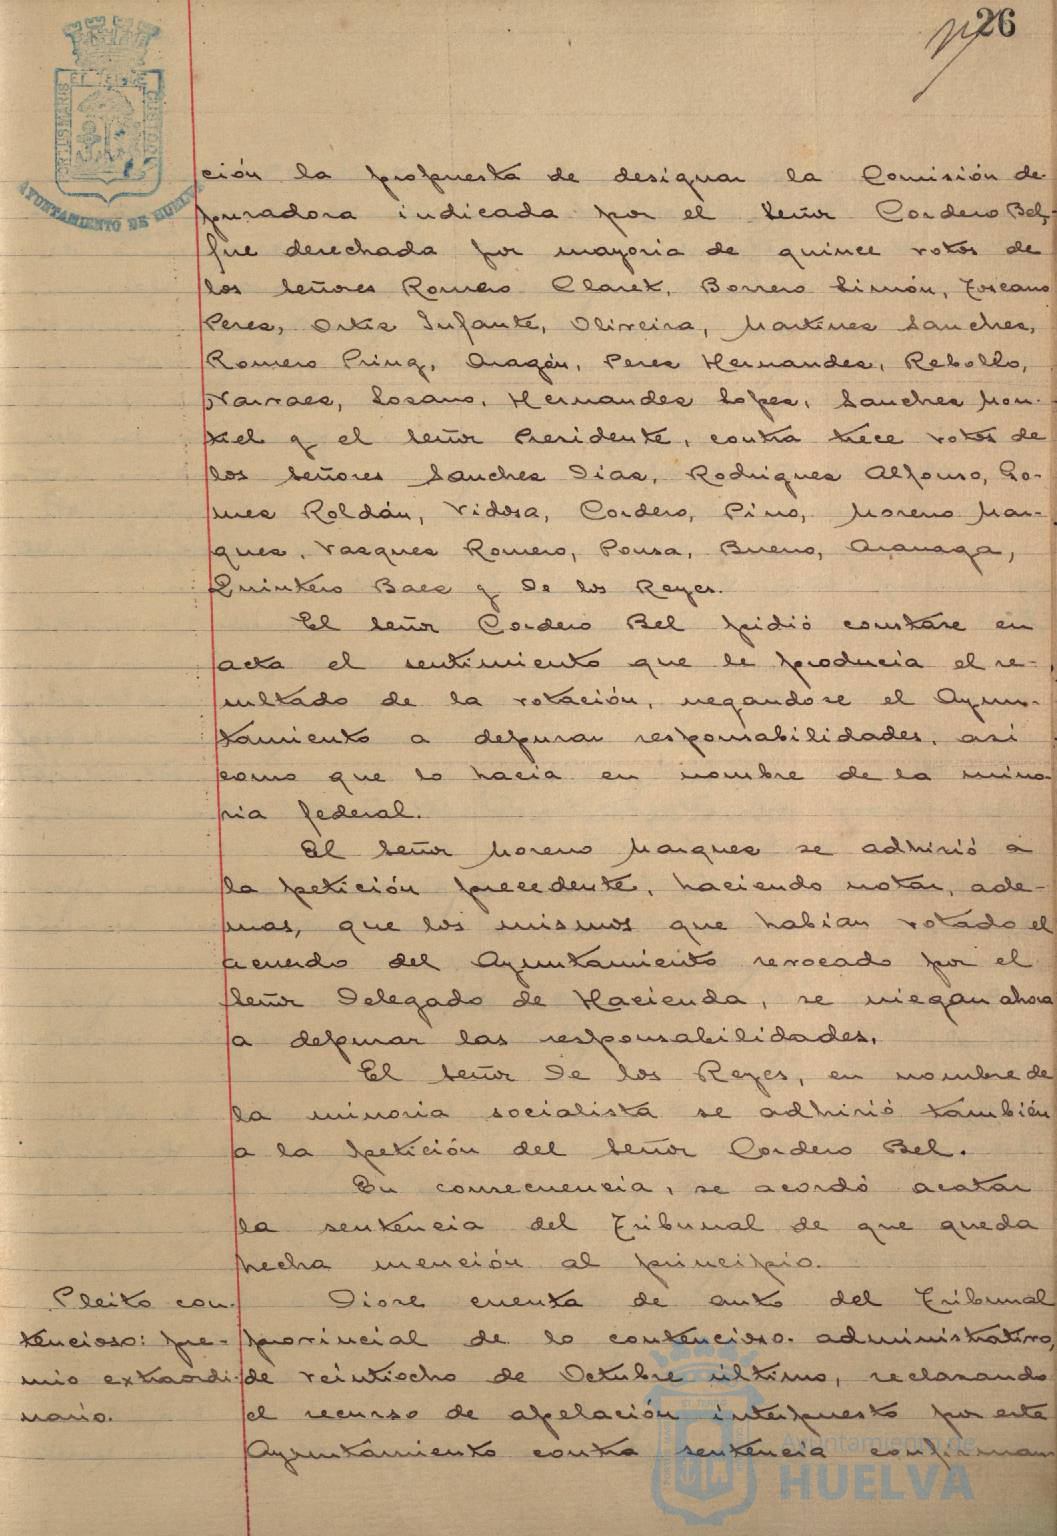 26
AYUNTAMIENTO DE HUELVA
ción la propuesta de designar la Comisión de-
puradora indicada por el Señor Cordero Bel,
fue desechada por mayoria de quince votos de
los Señores Romero Claret, Borrero Limón, Toscano
Perez, Ortiz Infante, Oliveira, Martinez Sanchez,
Romero Pring, Aragón, Perez Hernandez, Rebollo,
Narvaez, Lozano, Hernandez Lopez, Sanchez Mon-
tiel y el Señor Presidente, contra trece votos de
los Señores Sanchez Diaz, Rodriguez Alfonso, Go-
mez Roldán, Vidosa, Cordero, Pino, Moreno Mar-
quez, Vazquez Romero, Ponsa, Bueno, Aranaga,
Quintero Baez y De los Reyes.
El Señor Cordero Bel pidió constase en
acta el sentimiento que le producia el re-
sultado de la votación, negandose el Ayun-
tamiento a depurar responsabilidades, asi
como que lo hacia en nombre de la mino-
ria federal.
El Señor Moreno Marquez se adhirió a
la petición precedente, haciendo notar, ade-
mas, que los mismos que habian votado el
acuerdo del Ayuntamiento revocado por el
Señor Delegado de Hacienda, se niegan ahora
a depurar las responsabilidades.
El Señor De los Reyes, en nombre de
la minoria socialista se adhirió también
a la petición del Señor Cordero Bel.
En consecuencia, se acordó acatar
la sentencia del Tribunal de que queda
hecha mención al principio.
Pleito con-
tencioso: pre-
mio extraordi-
nario.
Diose cuenta de auto del Tribunal
provincial de lo contencioso-administrativo,
de veintiocho de Octubre último, rechazando
el recurso de apelación interpuesto por este
Ayuntamiento contra sentencia confirman
Ayuntamiento de
HUELVA